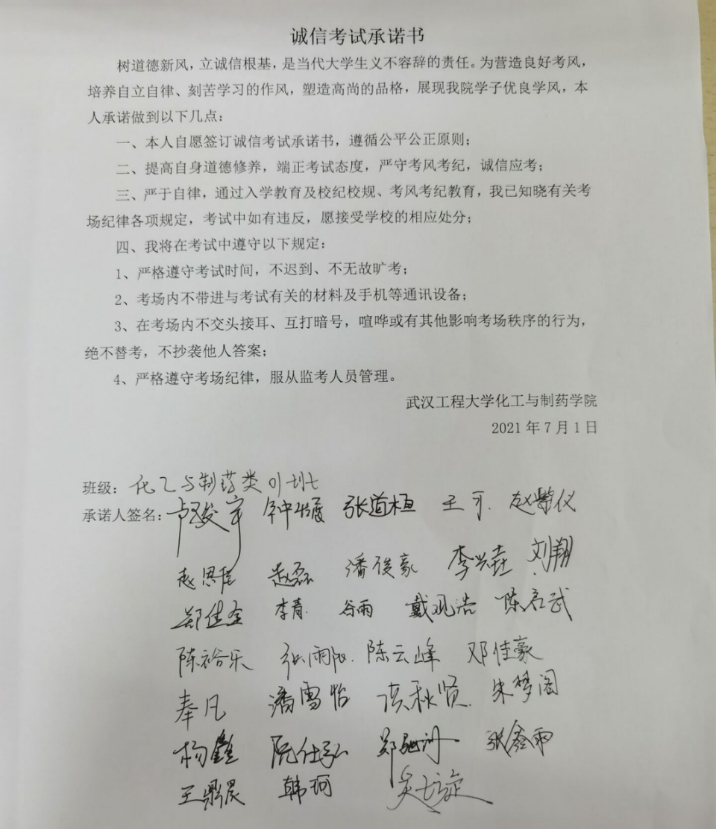 诚信考试承诺书
树道德新风，立诚信根基，是当代大学生义不容辞的责任。为营造良好考风，
培养自立自律、刻苦学习的作风，塑造高尚的品格，展现我院学子优良学风，本
人承诺做到以下几点：
一、本人自愿签订诚信考试承诺书，遵循公平公正原则；
二、提高自身道德修养，端正考试态度，严守考风考纪，诚信应考；
三、严于自律，通过入学教育及校纪校规、考风考纪教育，我已知晓有关考
场纪律各项规定，考试中如有违反，愿接受学校的相应处分；
四、我将在考试中遵守以下规定：
1、严格遵守考试时间，不迟到、不无故旷考；
2、考场内不带进与考试有关的材料及手机等通讯设备；
3、在考场内不交头接耳、互打暗号，喧哗或有其他影响考场秩序的行为，
绝不替考，不抄袭他人答案；
4、严格遵守考场纪律，服从监考人员管理。
武汉工程大学化工与制药学院
2021年7月1日
班级：化工与制药类01班
承诺人签名： 张道桓 王可
赵思佳 赵磊 潘俊豪 李兴垚 刘翔
郑佳奎 李青 谷雨 戴观浩 陈启武
陈裕乐 张雨阳 陈云峰 邓佳豪
奉凡 潘雪怡 朱梦阁
杨鑫 阮仕弘 张鑫雨
王鼎晨 韩珂